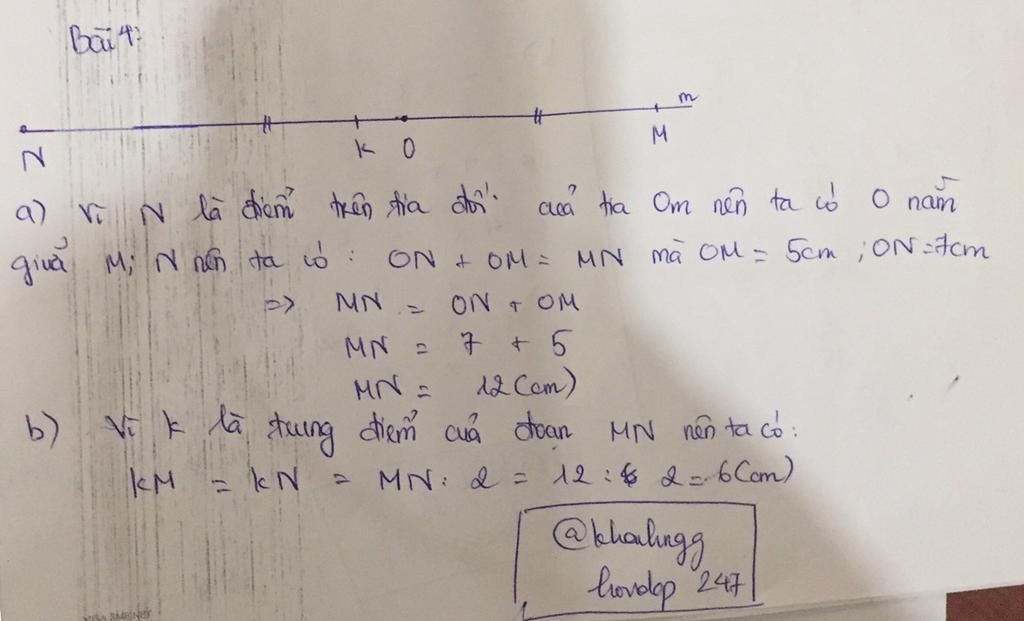 Bài 4:
m
N K O M
a) Vì N là điểm trên tia đối của tia Om nên ta có O nằm
giữa M; N nên ta có: ON + OM = MN mà OM = 5cm ; ON = 7cm
=> MN = ON + OM
MN = 7 + 5
MN = 12 (cm)
b) Vì K là trung điểm của đoạn MN nên ta có:
KM = KN = MN : 2 = 12 : 2 = 6 (cm)
@khalingg
hoidap 247